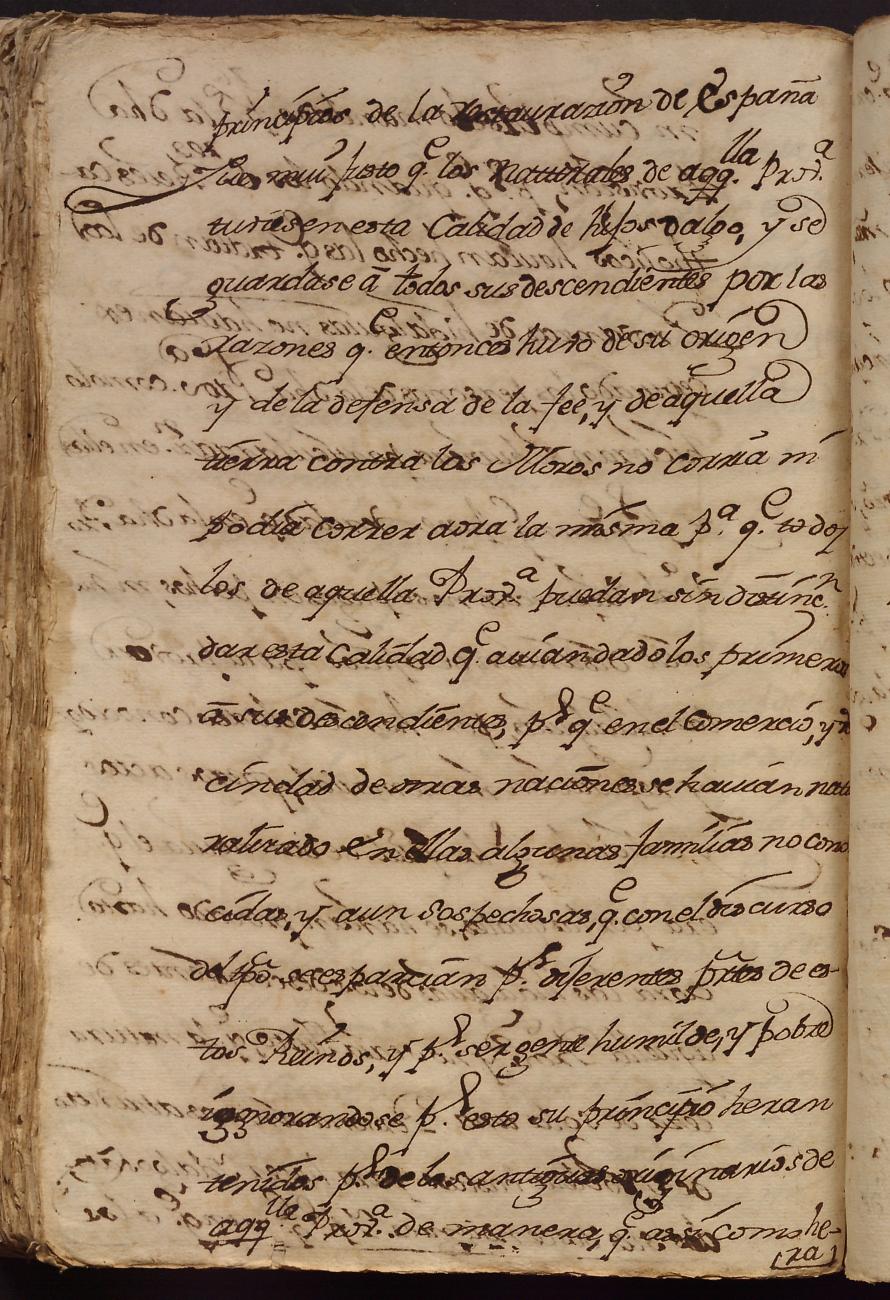 principios de la restaurazion de España
fue mui justo q.e los naturales de aqq.lla Prov.a
tuviesen esta Calidad de hijosdalgo, y se
guardase â todos sus descendientes por las
razones q.e entonces huvo de su origen
y de la defensa de la fee, y de aquella
tierra contra los Moros no corria ni
podia correr aora la misma p.a q.e todos
los de aquella Prov.a puedan sin distinc.n
dar esta Calidad q.e avian dado los primeros
â sus descendientes, p.r q.e en el Comercio, y ve
cindad de otras naciones se havian natu
ralizado en ellas algunas familias no cono
cidas, y aun sospechosas, q.e con el discurso
del tpo. se esparcian p.r diferentes prtes de es-
tos Reinos, y p.r ser gente humilde, y pobre
ignorandose p.r esto su principio heran
tenidos p.r de los antiguos originarios de
aqq.lla Prov.a de manera, q.e assi como he-
(ra)